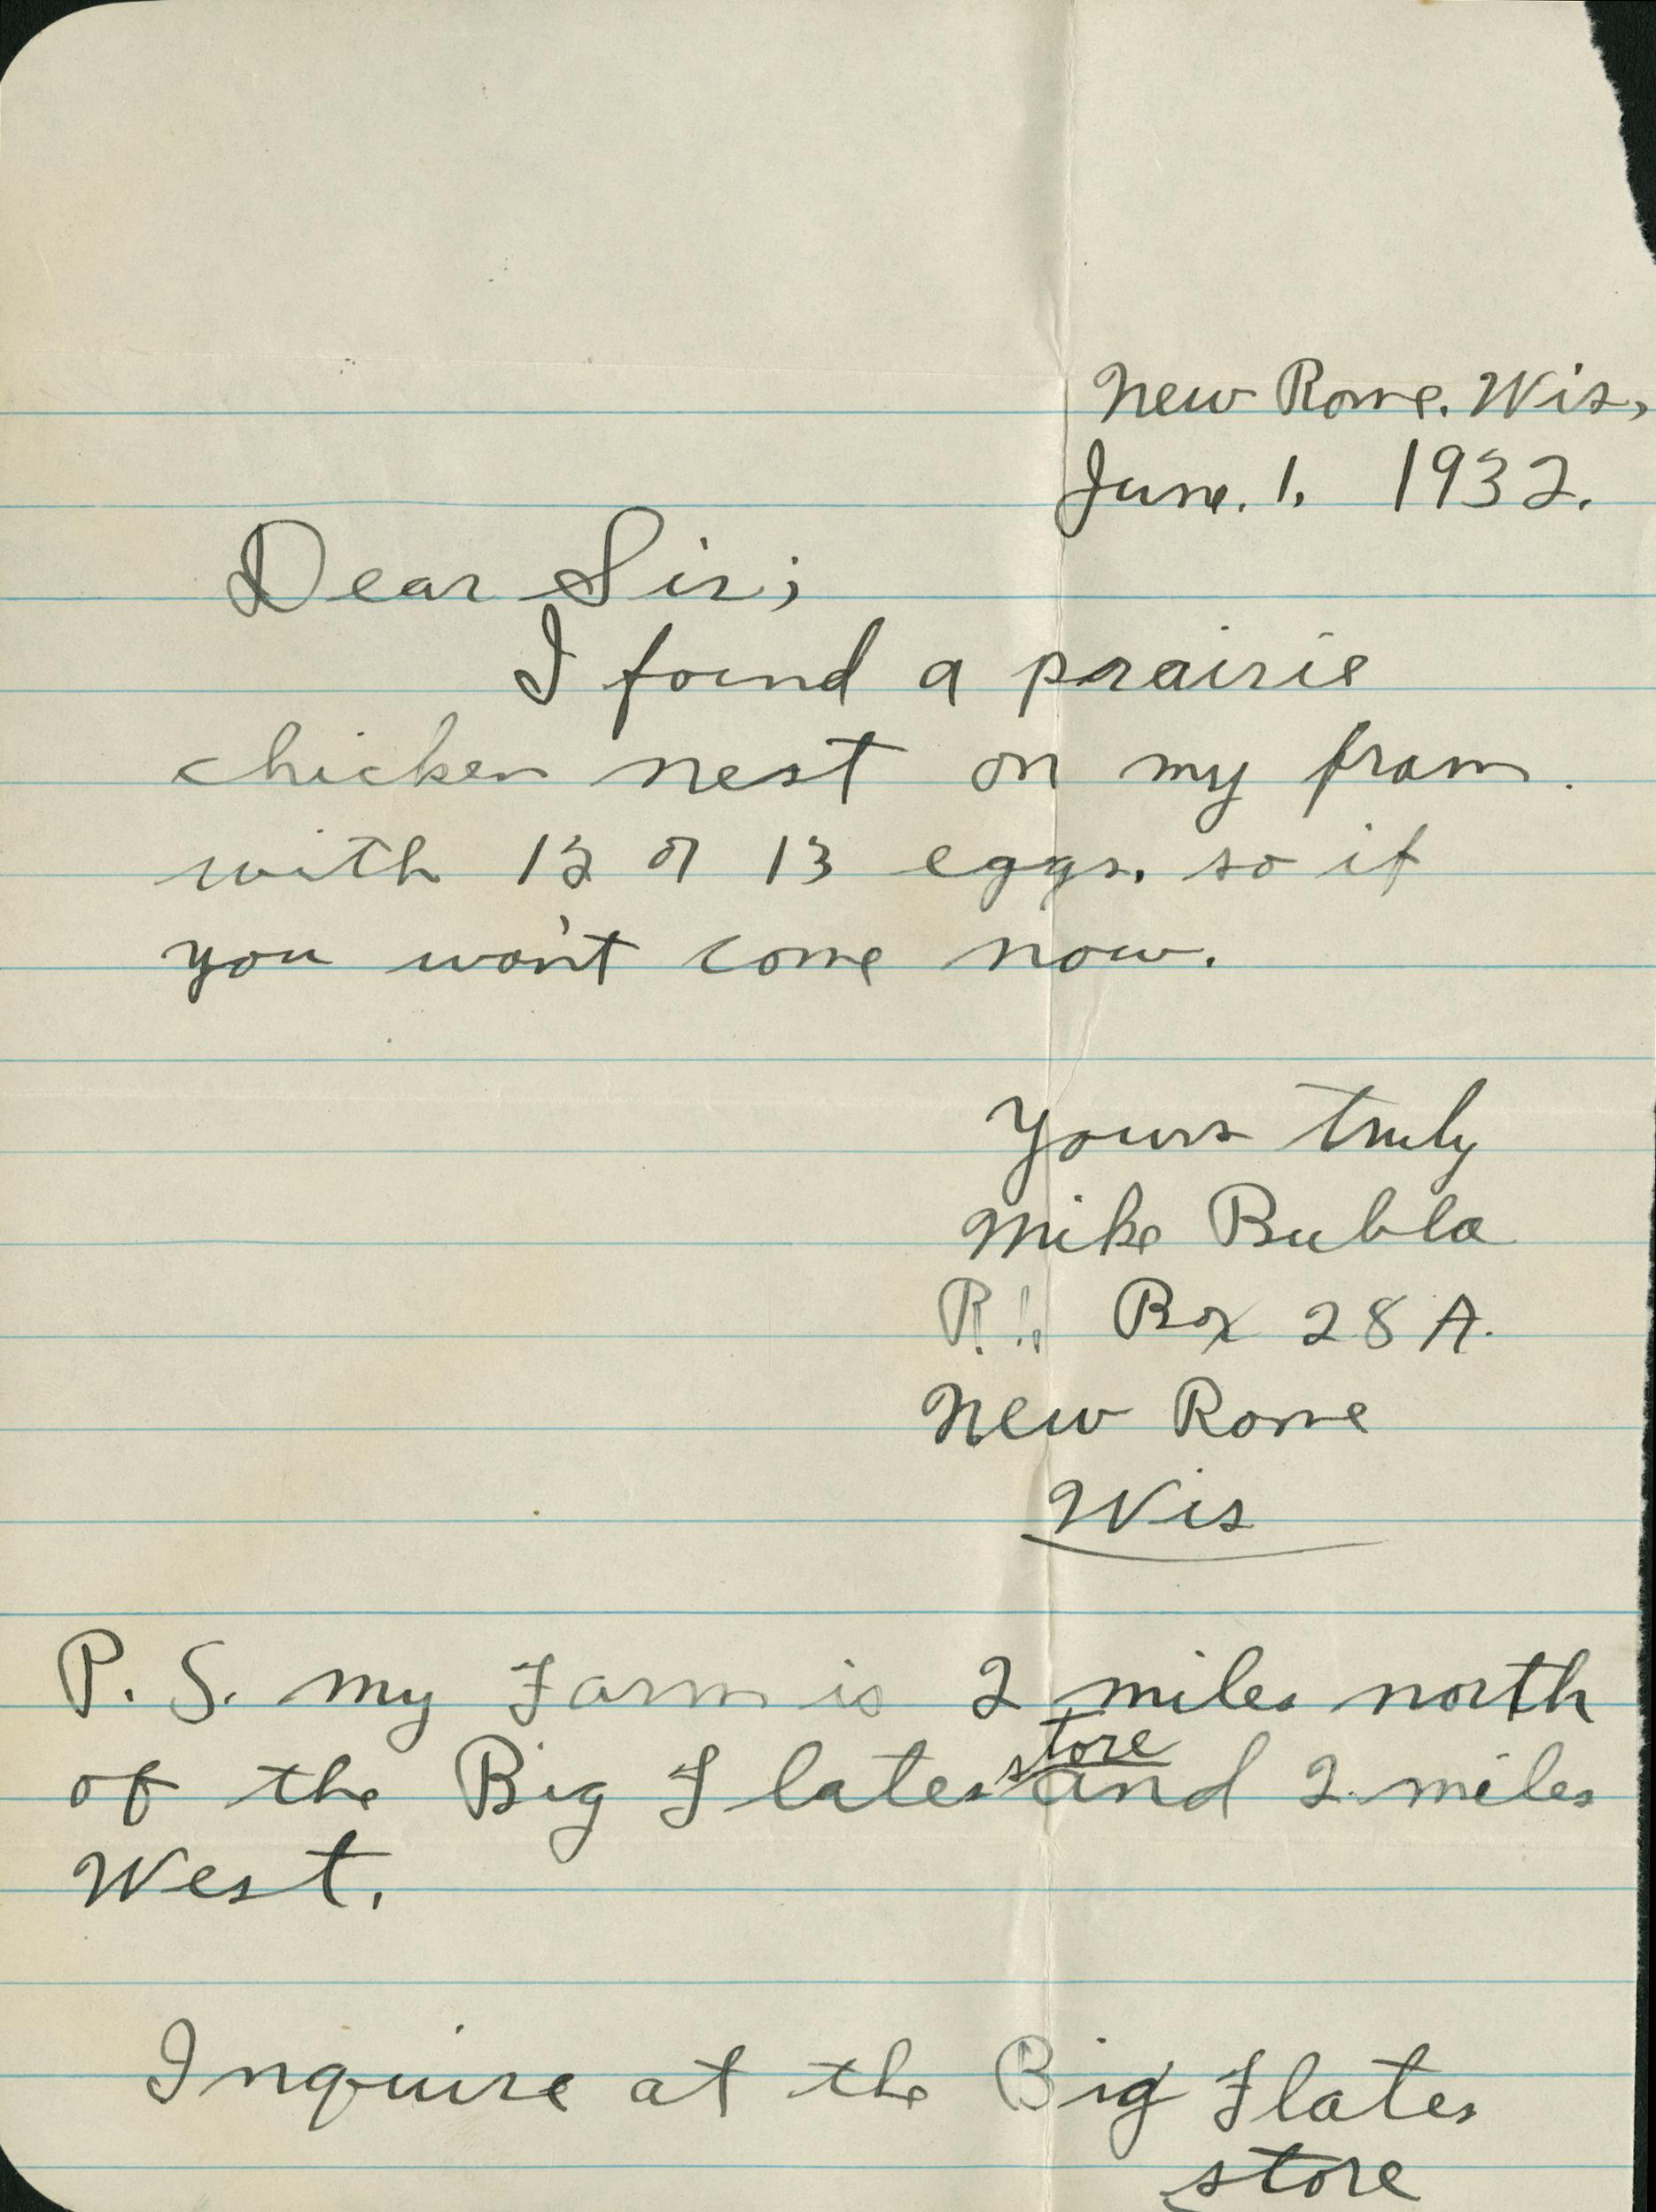 New Rome. Wis,
June. 1. 1932.
Dear Sir;
I found a prairie
chicken nest on my fram.
with 12 or 13 eggs. so if
you won't come now.
Yours truly
Mike Bubla
R.1. Box 28 A.
New Rome
Wis
P. S. my Farm is 2 miles north
of the Big Flates store and 2 miles
West.
Inquire at the Big Flates
store